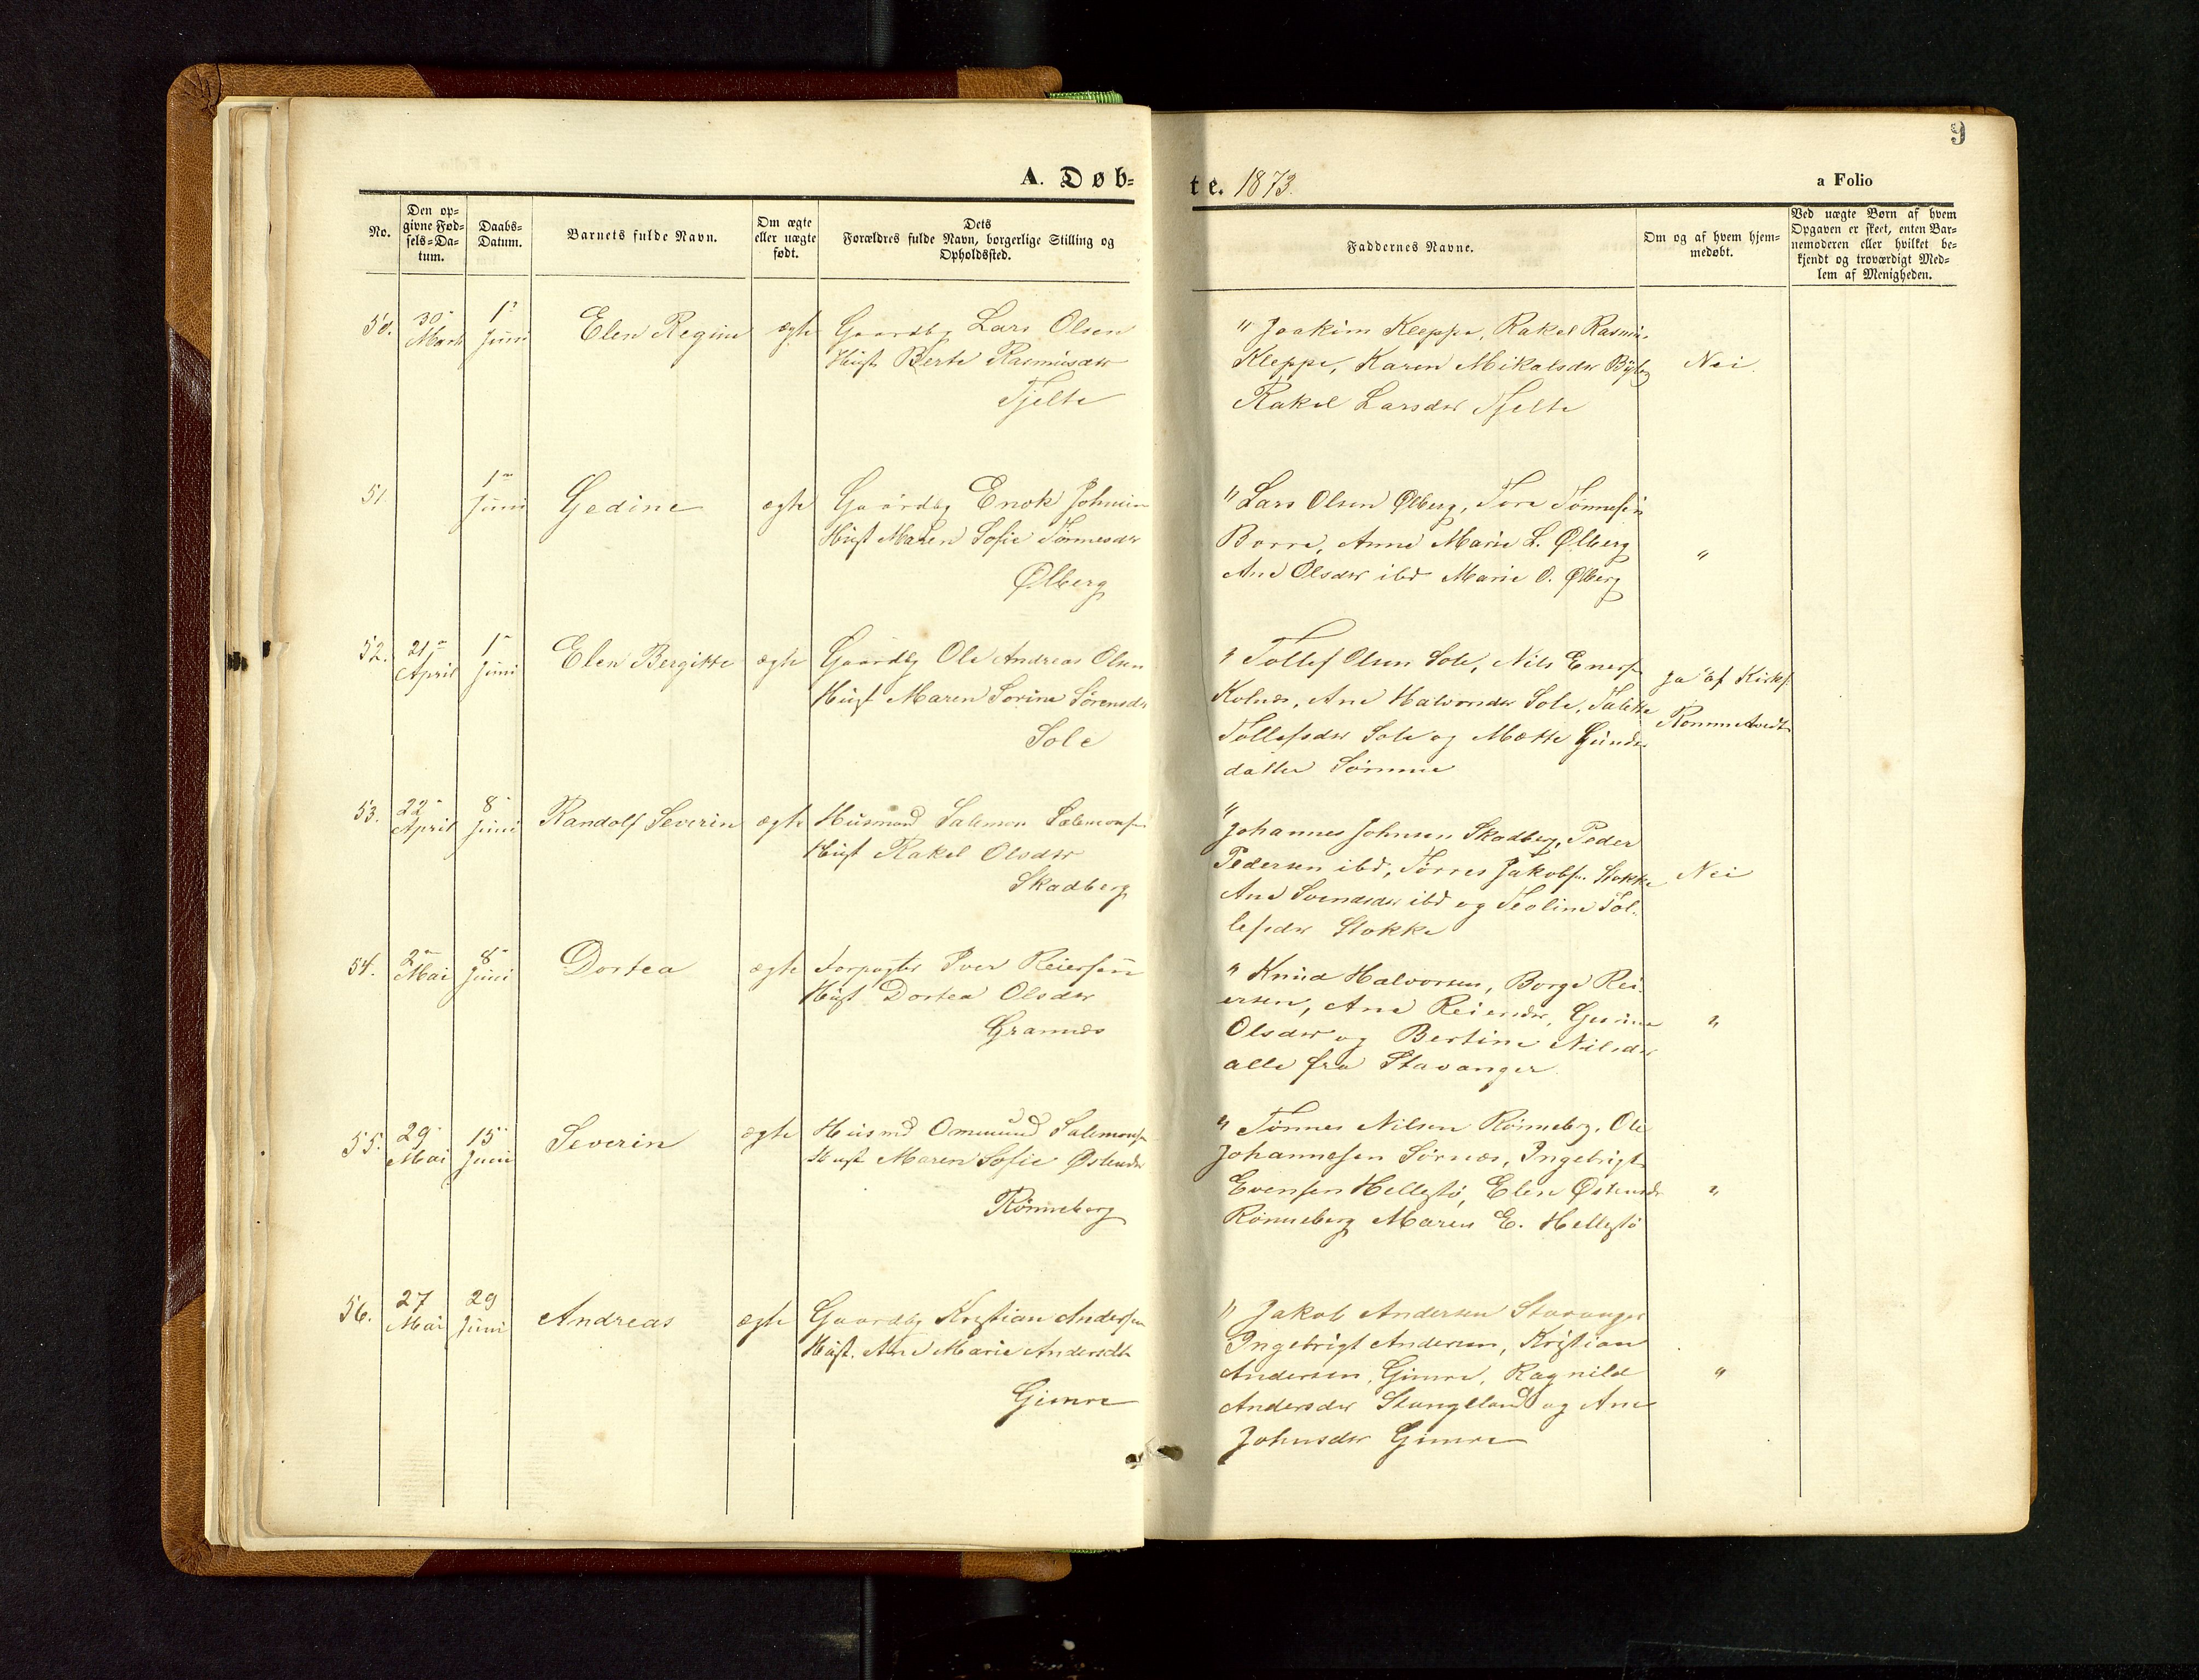 9
A. Døb-
te. 1873.
a Folio
No.
Den op-
givne Fød-
sels-Da-
tum.
Daabs-
Datum.
Barnets fulde Navn.
Om ægte
eller uægte
født.
Dets
Forældres fulde Navn, borgerlige Stilling og
Opholdssted.
Faddernes Navne.
Om og af hvem hjem-
medøbt.
Ved uægte Børn af hvem
Opgaven er skeet, enten Bar-
nemoderen eller hvilket be-
kjendt og troværdigt Med-
lem af Menigheden.
50. 30 Marts 1 Juni Elen Regine ægte Gaardbr Lars Olsen
Hust Berte Rasmusdtr
Tjelte
" Joakim Kleppe, Rakel Rasmus.
Kleppe, Karen Mikalsdtr
Rakel Larsdtr Tjelte
Nei.
51. 1 Juni Gedine ægte Gaardbg Enok Johnsen
Hust Maren Sofie Tønnesdtr
Ølberg
" Lars Olsen Ølberg, Tore Tønnesen
Borre, Anne Marie L. Ølberg
Ane Olsdtr ibd Marie O. Ølberg
"
52. 21 April 1 Juni Elen Bergitte ægte Gaardbg Ole Andreas Olsen
Hust Maren Sorine Sörensdtr
Sole
" Tollef Olsen Sole, Nils Enersn
Kolnes, Ane Halvorsdtr Sole, Talette
Tollefsdtr Sole og Mætte Gunder
datter Sømme
ja af Kirks.
Rommetvedt
53. 22 April 8 Juni Randolf Severin ægte Husmand Salemon Salemonsn
Hust Rakel Olsdtr
Skadberg
"
Johannes Johnsen Skadberg, Peder
Pedersen ibd, Tørres Jakobsn Stokke
Ane Svendsdtr ibd og Teoline Tol-
lefsdtr Stokke
Nei
54. 2 Mai 8 Juni Dortea ægte Forpagter Iver Reiersen
Hust Dortea Olsdtr
Grannes
" Knud Halvorsen, Borge Rei-
ersen, Ane Reiersdtr, Gurine
Olsdtr og Bertine Nilsdtr
alle fra Stavanger
"
55. 29 Mai 15 Juni Severin ægte Husmd Ommund Salemonsn
Hust Maren Sofie Østensdtr
Rönneberg
" Tønnes Nilsen Rönneberg, Ole
Johannesen Sörnes, Ingebrigt
Evensen Hellestø, Elen Østensdtr
Rönneberg Maren E. Hellestø
"
56. 27 Mai 29 Juni Andreas ægte Gaardbg Kristian Andersen
Hust. Ane Marie Andersdtr
Gimre
" Jakob Andersen Stavanger
Ingebrigt Andersen, Kristian
Andersen, Gimre, Ragnild
Andersdtr Stangeland og Ane
Johnsdtr Gimre
"